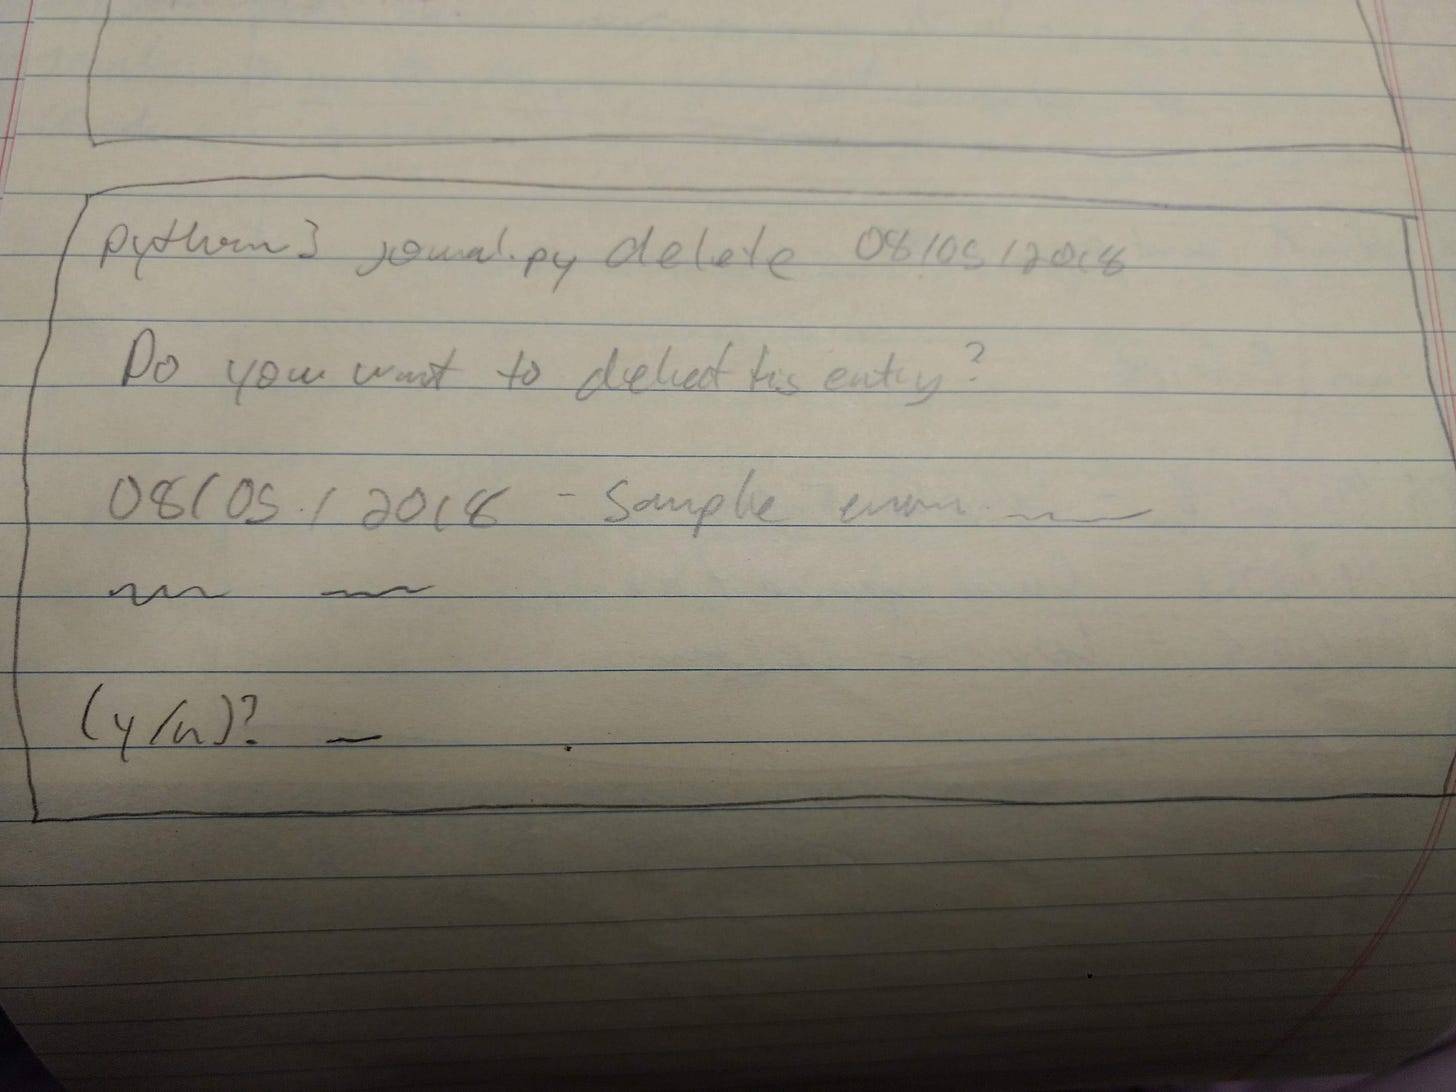 python3 jounal.py delete 08/05/2018
Do you want to delect this entry?
08/05/2018 - Sample
(y/n)? _